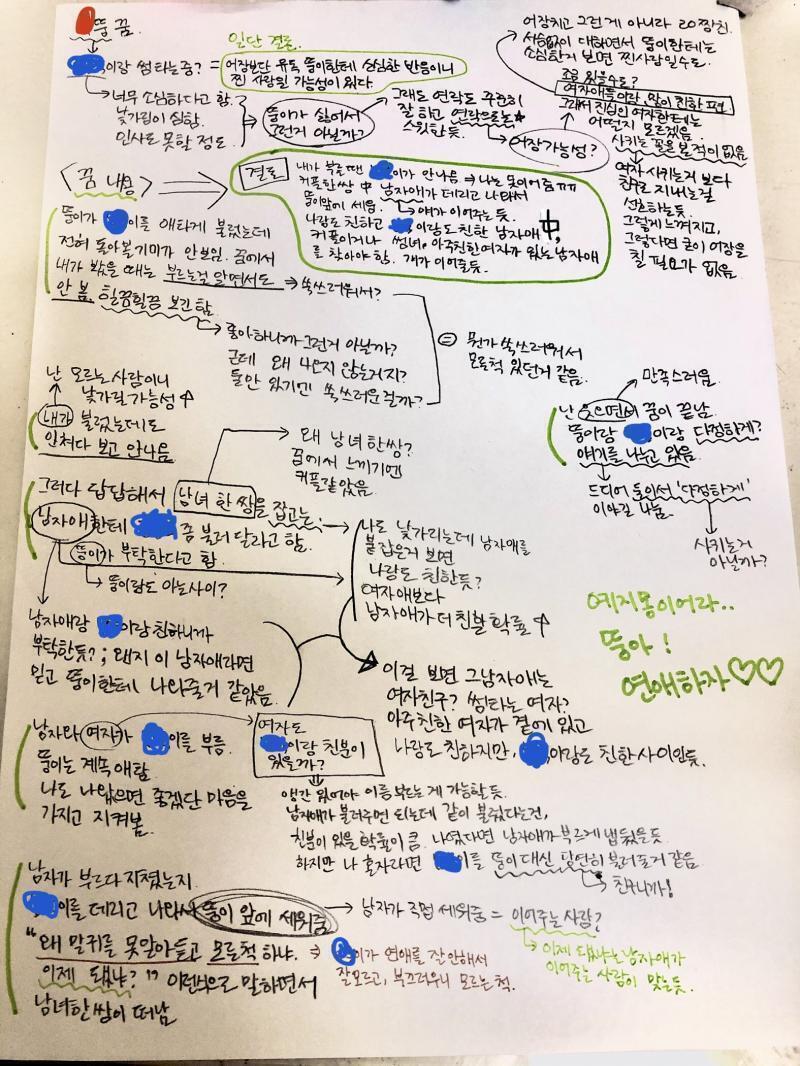 뚱 꿈
이랑 썸타는중?
너무 소심하다고 함.
낯가림이 심함.
인사도 못할 정도
일단 결론
= 어장보단 유독 뚱이한테 상심한 반응이니
찐 사랑일 가능성이 있다.
뚱이가 싫어서
그런거 아닐까?
그래도 연락도 꾸준히
잘 하고 연락으로는
스윗한듯.
어장가능성?
어장치고 그런게 아니라 20짱친
사심없이 대하면서 뚱이한테는
소심한거 보면 찐사랑일수도.
조금 있을수도?
여자애들이랑 많이 친한 편
그래서 진심인 여자한테는
어떤지 모르겠음.
사귀는 꼴을 본적이 없음
여자 사귀는거 보다
친구로 지내는걸
선호하는듯.
그렇게 느껴지고,
그렇다면 굳이 어장을
칠 필요가 없음
<꿈 내용>
결론
내가 부를땐 이가 안나옴 ⇒ 나는 못이어줌 ㅠㅠ
커플한쌍 中 남자애가 데리고 나와서
뚱이앞에 세움. 얘가 이어주는 듯.
나랑도 친하고 이랑도 친한 남자애 中,
커플이거나 썸녀, 아주친한여자가 있는 남자애
를 찾아야 함. 걔가 이어줄듯.
뚱이가 이를 애타게 불렀는데
전혀 돌아볼기미가 안보임. 꿈에서
내가 봤을 때는 부르는걸 알면서도
안 봄. 힐끔힐끔 보긴 함.
쑥쓰러워서?
좋아하니까 그런거 아닐까?
근데 왜 나오지 않는거지?
둘만 있기엔 쑥쓰러운걸까?
= 뭔가 쑥쓰러워서
모르척 있던거 같음.
난 모르는 사람이니
낯가릴 가능성↑
내가 불렀는데도
안쳐다 보고 안나옴
왜 남녀 한쌍?
꿈에서 느끼기엔
커플같았음.
만족스러움.
난 웃으면서 꿈이 끝남.
뚱이랑 이랑 다정하게?
얘기를 나누고 있음.
드디어 둘이서 '다정하게'
이야길 나눔.
사귀는거
아닐까?
그러다 답답해서 남녀 한 쌍을 잡고는
남자애한테 좀 불러 달라고 함.
뚱이가 부탁한다고 함.
뚱이랑도 아는사이?
나도 낯가리는데 남자애를
붙잡은거 보면
나랑도 친한듯?
여자애보다
남자애가 더 친할 확률↑
남자애랑 이랑 친하니까
부탁한듯?; 왠지 이 남자애라면
믿고 뚱이한테 나와줄거 같았음.
이걸 보면 그남자애는
여자친구? 썸타는 여자?
아주친한 여자가 곁에 있고
나랑도 친하지만, 이랑도 친한 사이인듯.
예지몽이어라..
뚱아!
연애하자♡♡
남자와 여자가 이를 부름.
뚱이는 계속 애탐.
나도 나왔으면 좋겠단 마음을
가지고 지켜봄.
여자도
이랑 친분이
있을까?
왠간 있어야 이름 부르는게 가능한듯.
남자애가 불러주면 되는데 같이 불렀다는건,
친분이 있을 확률이 큼. 나였다면 남자애가 부르게 냅뒀을듯
하지만 나 혼자라면 이를 뚱이 대신 당연히 불러줄거 같음.
친구니까!
남자가 부르다 지쳤는지
이를 데리고 나와서 뚱이 앞에 세워줌
"왜 말귀를 못알아듣고 모르척 하냐.
이제 됐냐?" 이런식으로 말하면서
남녀한쌍이 떠남
남자가 직접 세워줌 = 이어주는 사람?
⇒ 이가 연애를 잘 안해서
잘모르고, 부끄러우니 모르는 척.
이제 됐냐는 남자애가
이어주는 사람이 맞는듯.